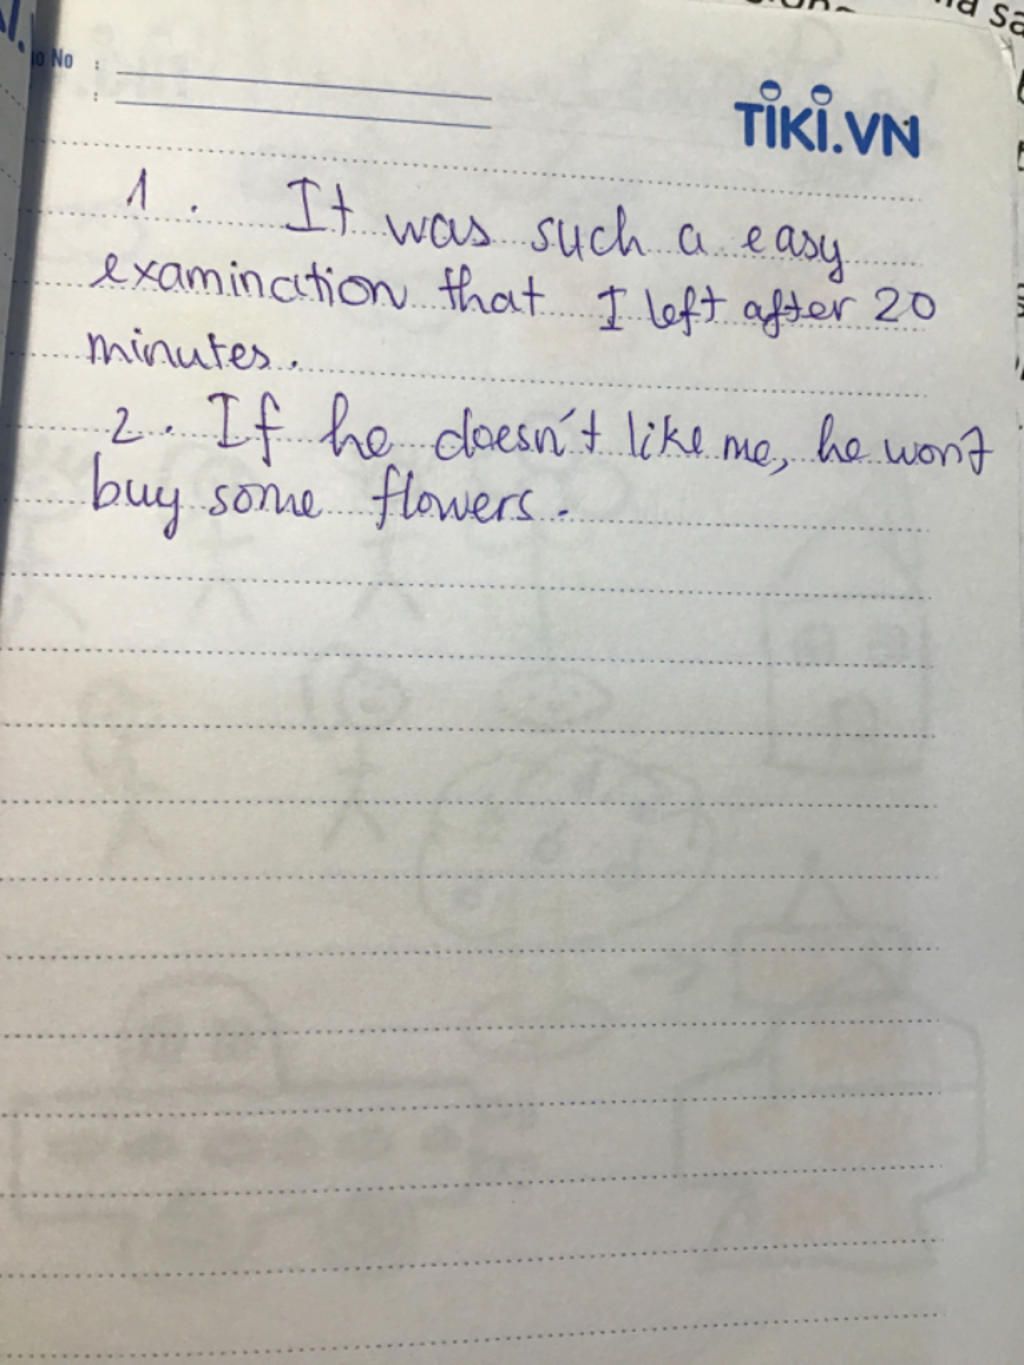 No :
:
TiKi.VN
1. It was such a easy
examination that I left after 20
minutes.
2. If he doesn't like me, he won't
buy some flowers.